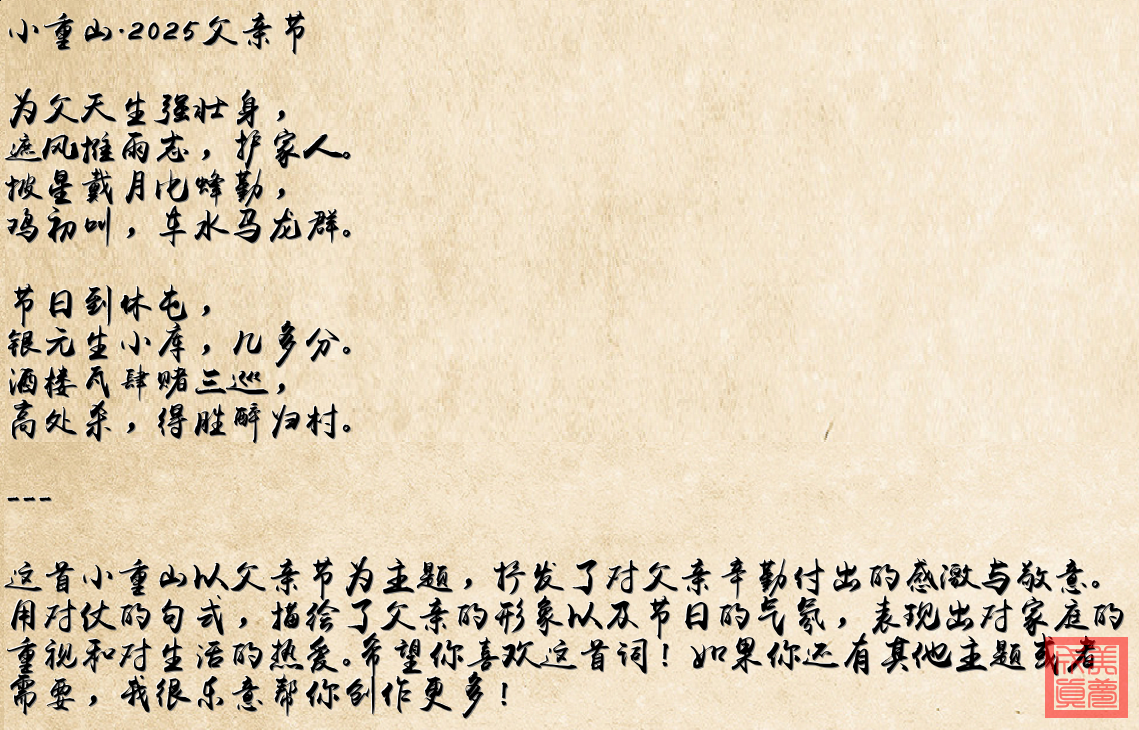 小重山·2025父亲节
为父天生强壮身，
遮风挡雨志，护家人。
披星戴月比蜂勤，
鸡初叫，车水马龙群。
节日到休屯，
银元生小库，几多分。
酒楼瓦肆赌三巡，
高处杀，得胜醉归村。
---
这首小重山以父亲节为主题，抒发了对父亲辛勤付出的感激与敬意。
用对仗的句式，描绘了父亲的形象以及节日的气氛，表现出对家庭的
重视和对生活的热爱。希望你喜欢这首词！如果你还有其他主题或者
需要，我很乐意帮你创作更多！